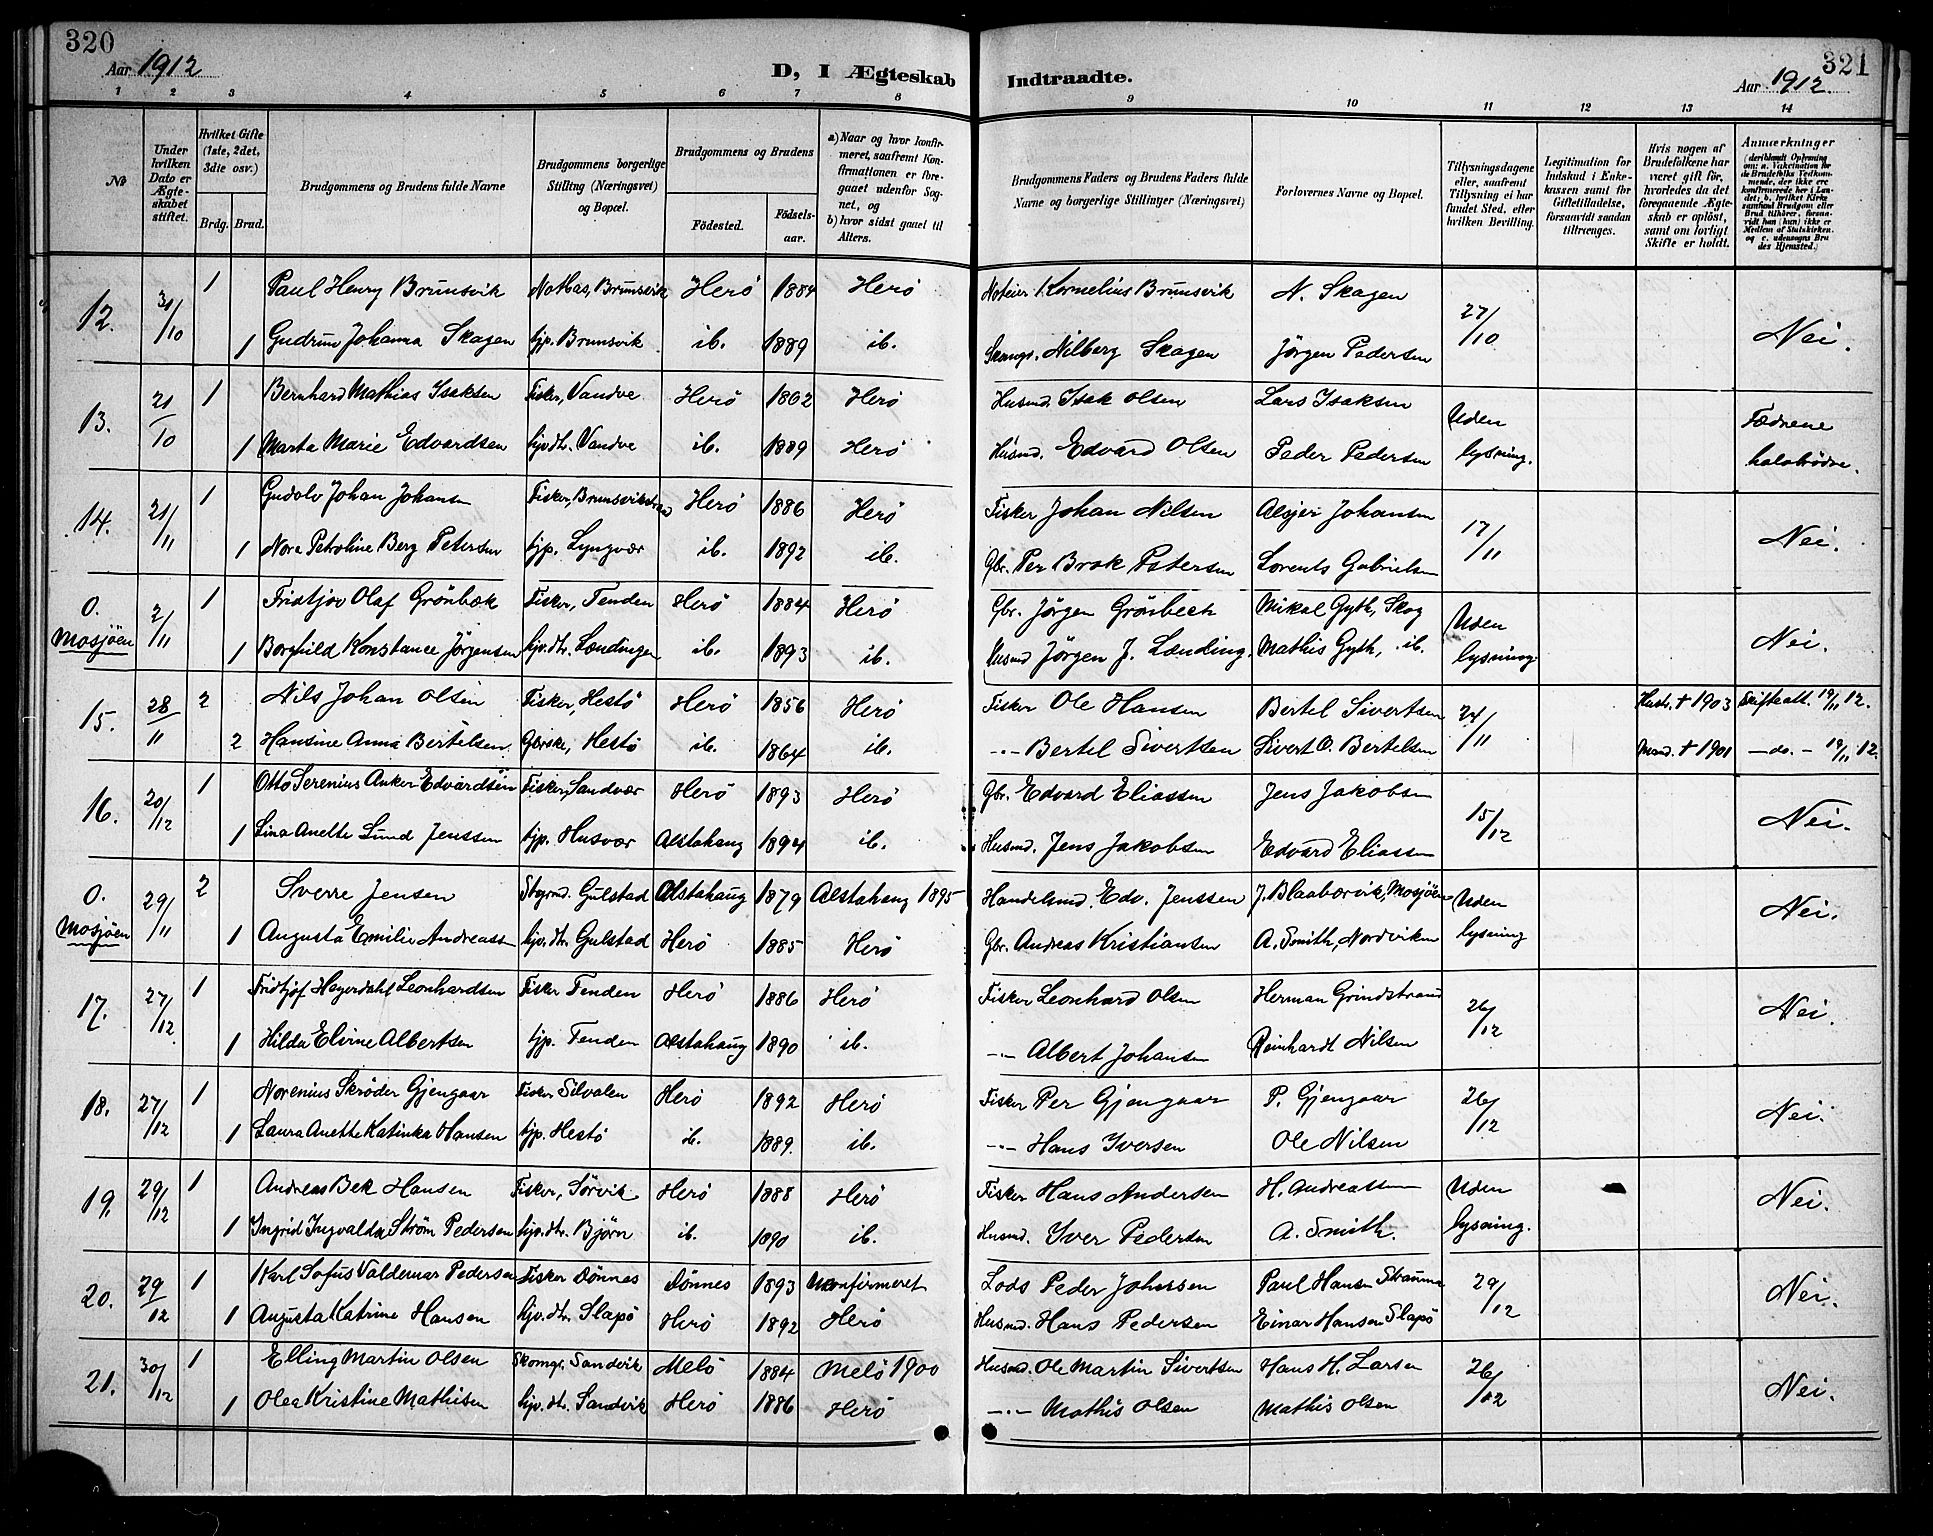 320
Aar 1912
D, I Ægteskab
Indtraadte.
Aar 1912
321
1 2 3 4 5 6 7 8
9 10 11 12 13 14
No
Under hvilken Dato er Ægteskabet stiftet.
Hvilket Gifte (1ste, 2det, 3die osv.)
Brdg. Brud.
Brudgommens og Brudens fulde Navne
Brudgommens borgerlige Stilling (Næringsvei) og Bopæl.
Brudgommens og Brudens
Fødested.
Fødselsaar.
a) Naar og hvor konfirmeret, saafremt Konfirmationen er foregaaet udenfor Sognet, og
b) hvor sidst gaaet til Alters.
Brudgommens Faders og Brudens Faders fulde Navne og borgerlige Stillinger (Næringsvei)
Forlovernes Navne og Bopæl.
Tillysningsdagene eller, saafremt Tillysning ei har fundet Sted, efter hvilken Bevilling.
Legitimation for Indskud i Enkekassen samt for Giftetilladelse, forsaavidt saadan tiltrænges.
Hvis nogen af Brudefolkene har været gift før, hvorledes da det foregaaende Ægteskab er opløst, samt om lovligt Skifte er holdt.
Anmærkninger
12. 31/10 1 Paul Henry Brunsvik Notbas, Brunsvik Herö 1884 Herö Noteier Kornelius Brunsvik N. Skagen 27/10
1 Gudrun Johanna Skagen hjp. Brunsvik ib. 1889 ib. Nilberg Skagen Jörgen Pedersen Nei.
13. 21/10 1 Bernhard Mathias Isaksen Fisker, Vandve Herö 1882 Herö Husmd. Isak Olsen Lars Isaksen Uden Fædrene
1 Marta Marie Edvardsen hjv. dtr. Vandve ib. 1889 Herö Husmd. Edvard Olsen Peder Pedersen lysning. halvbrödre.
14. 21/11 1 Gudolv Johan Johansen Fisker, Herö 1886 Herö Fisker Johan Nilsen Johansen 17/11
1 Nora Petroline Berg Petersen hjp. Lyngvær ib. 1892 ib. Gbr. Per Brok Petersen Lorents Gabrielsen Nei.
O. Mosjöen 2/11 1 Fridtjov Olaf Grönbæk Fisker, Tenden Herö 1884 Herö Gbr. Jörgen Grönbech Mikal Gyth, Skog Uden
1 Borghild Konstance Jörgensen hjv. dtr. Lændingen ib. 1893 ib. Husmd Jörgen J. Lænding. Mathis Gyth, ib. lysning Nei.
15. 28/11 2 Nils Johan Olsen Fisker, Hestö Herö 1856 Herö Fisker Ole Hansen Bertel Sivertsen 24/11 Hustr. † 1903 Skifteatt. 19/11 12.
2 Hansine Anna Bertelsen. Gbrske, Hestö ib. 1864 ib. -"- Bertel Sivertsen Sivert O. Bertelsen Mand. † 1901 - do. - 19/11 12.
16. 20/12 1 Otto Serenius Anker Edvardsen Fisker, Sandvær Herö 1893 Herö Gbr. Edvard Eliassen Jens Jakobsen 15/12
1 Lina Anette Lund Jenssen hjp. Husvær Alstahaug 1894 ib. Husmd. Jens Jakobsen Edvard Eliassen Nei.
O. Mosjöen 29/11 2 Sverre Jensen Gulstad Alstahaug 1879 Alstahaug 1895 Handelsmd. Edv. Jenssen J. Blaabærvik, Mosjöen Uden
1 Augusta Emilie Andreassn hjv. dtr. Gulstad Herö 1885 Herö Gbr. Andreas Kristiansen A. Smith, Nordviken lysning Nei.
17. 27/12 1 Fridtjof Heyerdahl Leonhardsen Fisker Tenden Herö 1886 Herö Fisker Leonhard Olsen Herman Grindstrand 26/12
1 Hilda Elvine Albertsen hjp. Tenden Alstahaug 1890 ib. -"- Albert Johansen Reinhardt Nilsen Nei.
18. 27/12 1 Norenius Skröder Gjengaar Fisker Silvalen Herö 1892 Herö Fisker Per Gjengaar P. Gjengaar 26/12
1 Laura Anette Katinka Hansen hjp. Hestö ib. 1889. ib. -"- Hans Iversen Ole Nilsen Nei.
19. 29/12 1 Andreas Bek Hansen Fisker, Sörvik Herö 1888 Herö Fisker Hans Andersen H. Andreassen Uden
1 Ingrid Ingvalda Ström Pedersen hjv. dtr. Björn ib. 1890 ib. Husmd. Iver Pedersen A. Smith. lysning. Nei.
20. 29/12 1 Karl Sofus Valdemar Pedersen Fisker Dönnes Dönnes 1893 Ukonfirmeret Lods Peder Johnsen Paul Hansen Straumen 29/12
1 Augusta Katrine Hansen hjv. dtr. Slapö Herö 1892 Herö Husmd. Hans Pedersen Einar Hansen Slapö Nei.
21. 30/12 1 Elling Martin Olsen Skomgr. Sandvik Melö 1884 Melö 1900 Husmd. Ole Martin Sivertsen Hans H. Larsen 26/12
1 Olea Kristine Mathisen hjv. dtr. Sandvik Herö 1886 Herö -"- Mathis Olsen Mathis Olsen Nei.